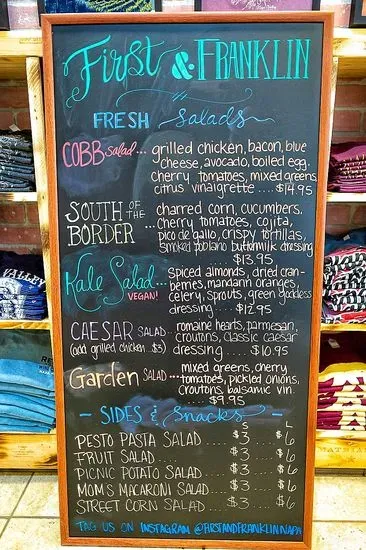 First & FRANKLIN
FRESH Salads
COBB salad... grilled chicken, bacon, blue
cheese, avocado, boiled egg,
cherry tomatoes, mixed greens,
citrus vinaigrette .... $14.95
SOUTH OF THE BORDER... charred corn, cucumbers,
cherry tomatoes, cojita,
pico de gallo, crispy tortillas,
smoked poblano buttermilk dressing
.... $13.95
Kale Salad... VEGAN! spiced almonds, dried cran-
berries, mandarin oranges,
celery, sprouts, green goddess
dressing .... $12.95
CAESAR SALAD... romaine hearts, parmesan,
(add grilled chicken...$3) croutons, classic caesar
dressing .... $10.95
Garden SALAD... mixed greens, cherry
tomatoes, pickled onions,
croutons, balsamic vin.
... $9.95
- SIDES & Snacks -
S L
PESTO PASTA SALAD .... $3 .. $6
FRUIT SALAD .... $3 .. $6
PICNIC POTATO SALAD .... $3 .. $6
MOM'S MACARONI SALAD .... $3 .. $6
STREET CORN SALAD .... $3 .. $6
TAG US ON INSTAGRAM @FIRSTANDFRANKLINNAPA
VALLEY